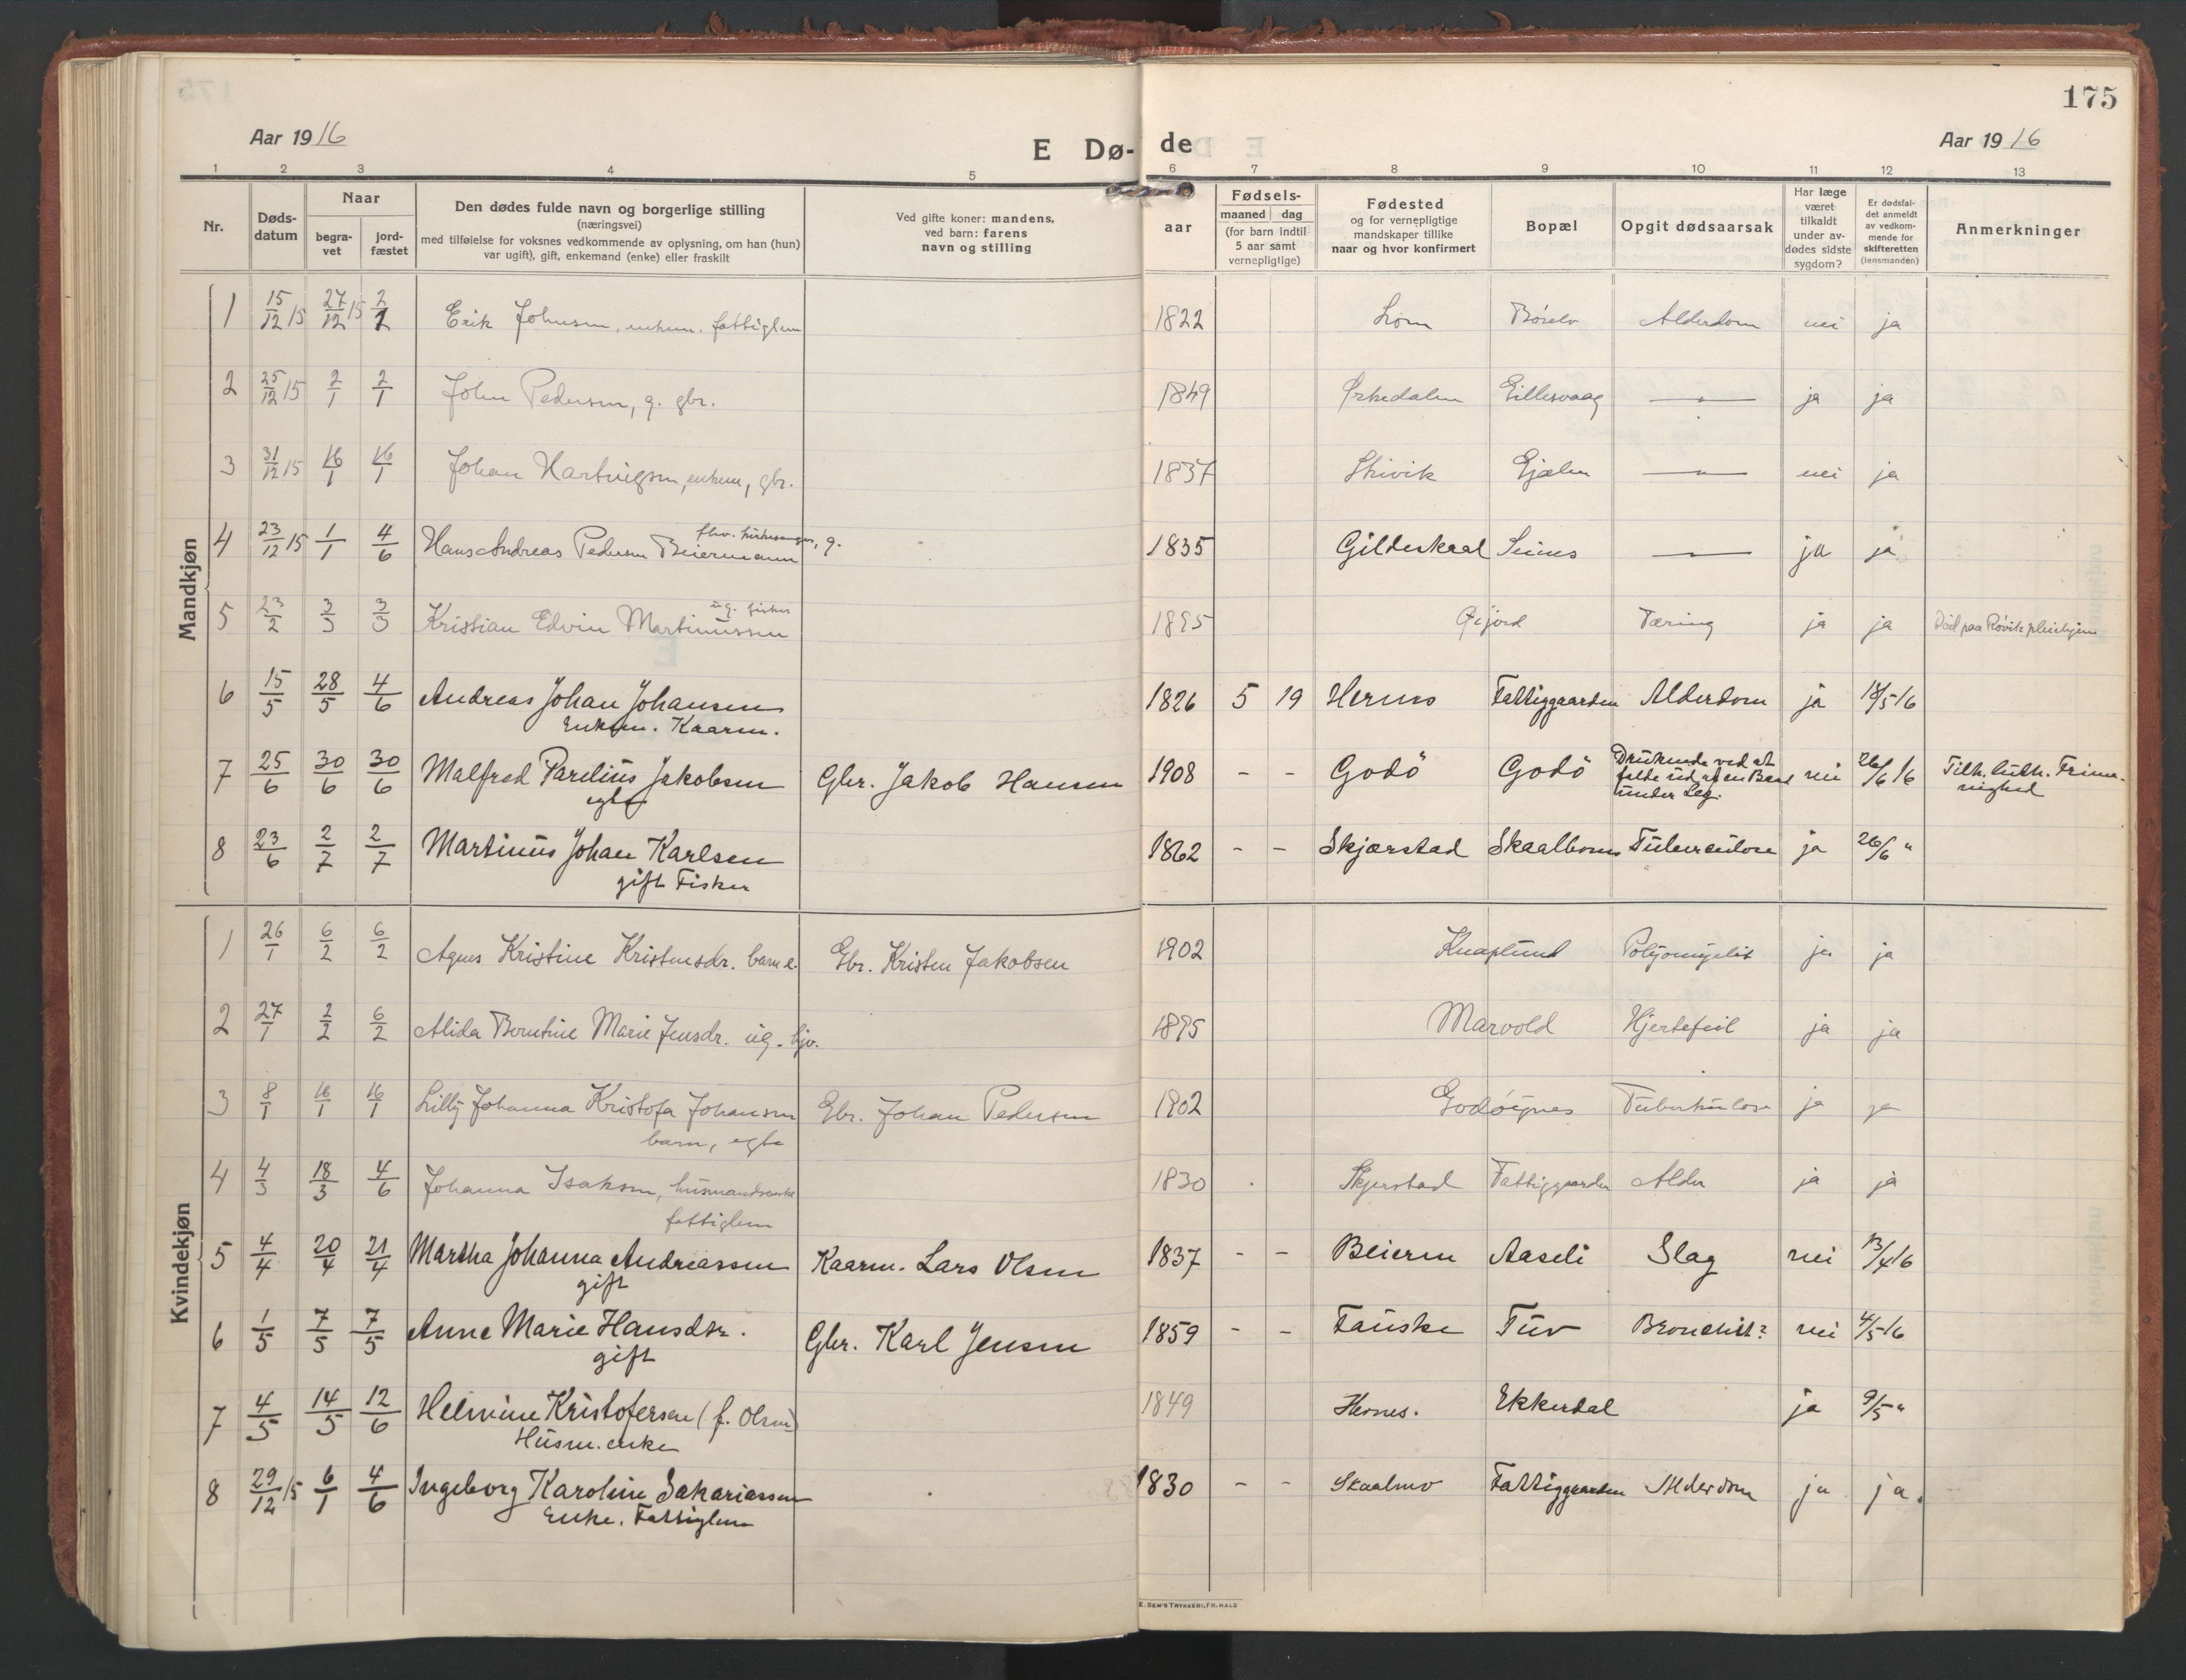 175
Aar 1916
E Dø-de
Aar 1916
1 2 3 4 5 6 7 8 9 10 11 12 13
Nr.
Døds-
datum
Naar
begra-
vet
jord-
fæstet
Den dødes fulde navn og borgerlige stilling
(næringsvei)
med tilføielse for voksnes vedkommende av oplysning, om han (hun)
var ugift), gift, enkemand (enke) eller fraskilt
Ved gifte koner: mandens,
ved barn: farens
navn og stilling
Fødsels-
aar
maaned dag
(for barn indtil
5 aar samt
vernepligtige)
Fødested
og for vernepligtige
mandskaper tillike
naar og hvor konfirmert
Bopæl
Opgit dødsaarsak
Har læge
været
tilkaldt
under av-
dødes sidste
sygdom?
Er dødsfal-
det anmeldt
av vedkom-
mende for
skifteretten
(lensmanden)
Anmerkninger
Mandkjøn
1 15/12 15 27/12 15 2/1 Erik Johnsen, enkem. fattiglem 1822 Lom Alderdom nei ja
2 25/12 15 2/1 2/1 John Pedersen, g. gbr. 1849 Ørkedalen Gillesvaag —"— ja ja
3 31/12 15 16/1 16/1 Johan Hartvigsen, enkem, gbr. 1837 Skivik Gjælen —"— nei ja
4 23/12 15 1/1 4/6 Hans Andreas Pedersen Beiermann fhv. kirkesanger, g. 1835 Gildeskaal Seines —"— ja ja
5 23/2 3/3 3/3 Kristian Edvin Martinussen ug. fisker 1895 Gjjord Tæring ja ja Død paa Røvik pleiehjem
6 15/5 28/5 4/6 Andreas Johan Johansen 1826 5 19 Hernes Fattiggaarden Alderdom ja 18/5 16
Enkem. Kaarm.
7 25/6 30/6 30/6 Malfred Parelius Jakobsen Gbr. Jakob Hansen 1908 - - Godö Godö Druknede ved at
falde ud af en Baad
under Leg. nei 26/6 16 Tilh. luth. Frime-
nighed
egte
8 23/6 2/7 2/7 Martinus Johan Karlsen 1862 - - Skjærstad Skaalbones Tuberculose ja 26/6 "
gift Fisker
Kvindekjøn
1 26/1 6/2 6/2 Agnes Kristine Kristensdr. barn e. Gbr. Kristen Jakobsen 1902 Knaplund Polyomyelit ja ja
2 27/1 2/2 6/2 Alida Berntine Marie Jensdr. ug. hjv. 1895 Marvold Hjertefeil ja ja
3 8/1 16/1 16/1 Lilly Johanna Kristofa Johansen Gbr. Johan Pedersen 1902 Godøynes Tuberkulose ja ja
barn, egte
4 4/3 18/3 4/6 Johanna Isaksen, husmandsenke 1830 Skjerstad Fattiggaarden Alder ja ja
fattiglem
5 4/4 20/4 21/4 Martha Johanna Andreassen Kaarm. Lars Olsen 1837 - - Beieren Aaseli Slag nei 13/4 16
gift
6 1/5 7/5 7/5 Anne Marie Hansdtr. Gbr. Karl Jensen 1859 - - Fauske Tuv Bronchit? nei 4/5 16
gift
7 4/5 14/5 12/6 Helmine Kristofersen (f. Olsen) 1849 Hernes. Ekkerdal ja 9/5 "
Husm. enke
8 29/12 15 6/1 4/6 Ingeborg Karoline Sakariassen 1830 - - Skaalmo Fattiggaarden Alderdom ja ja.
Enke. Fattiglem
E. SEM'S TRYKKERI, FR.HALD